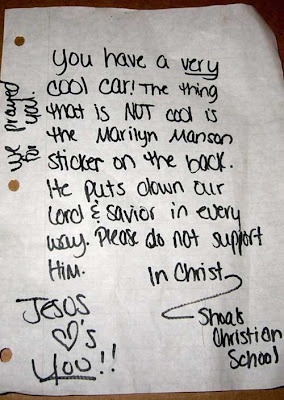 You have a very
cool car! The thing
that is NOT cool is
the Marilyn Manson
sticker on the back.
He puts down our
Lord & Savior in every
way. Please do not support
Him.
In Christ
Shoals
Christian
School
JESUS
♡'s
YOU!!
we prayed
for you.